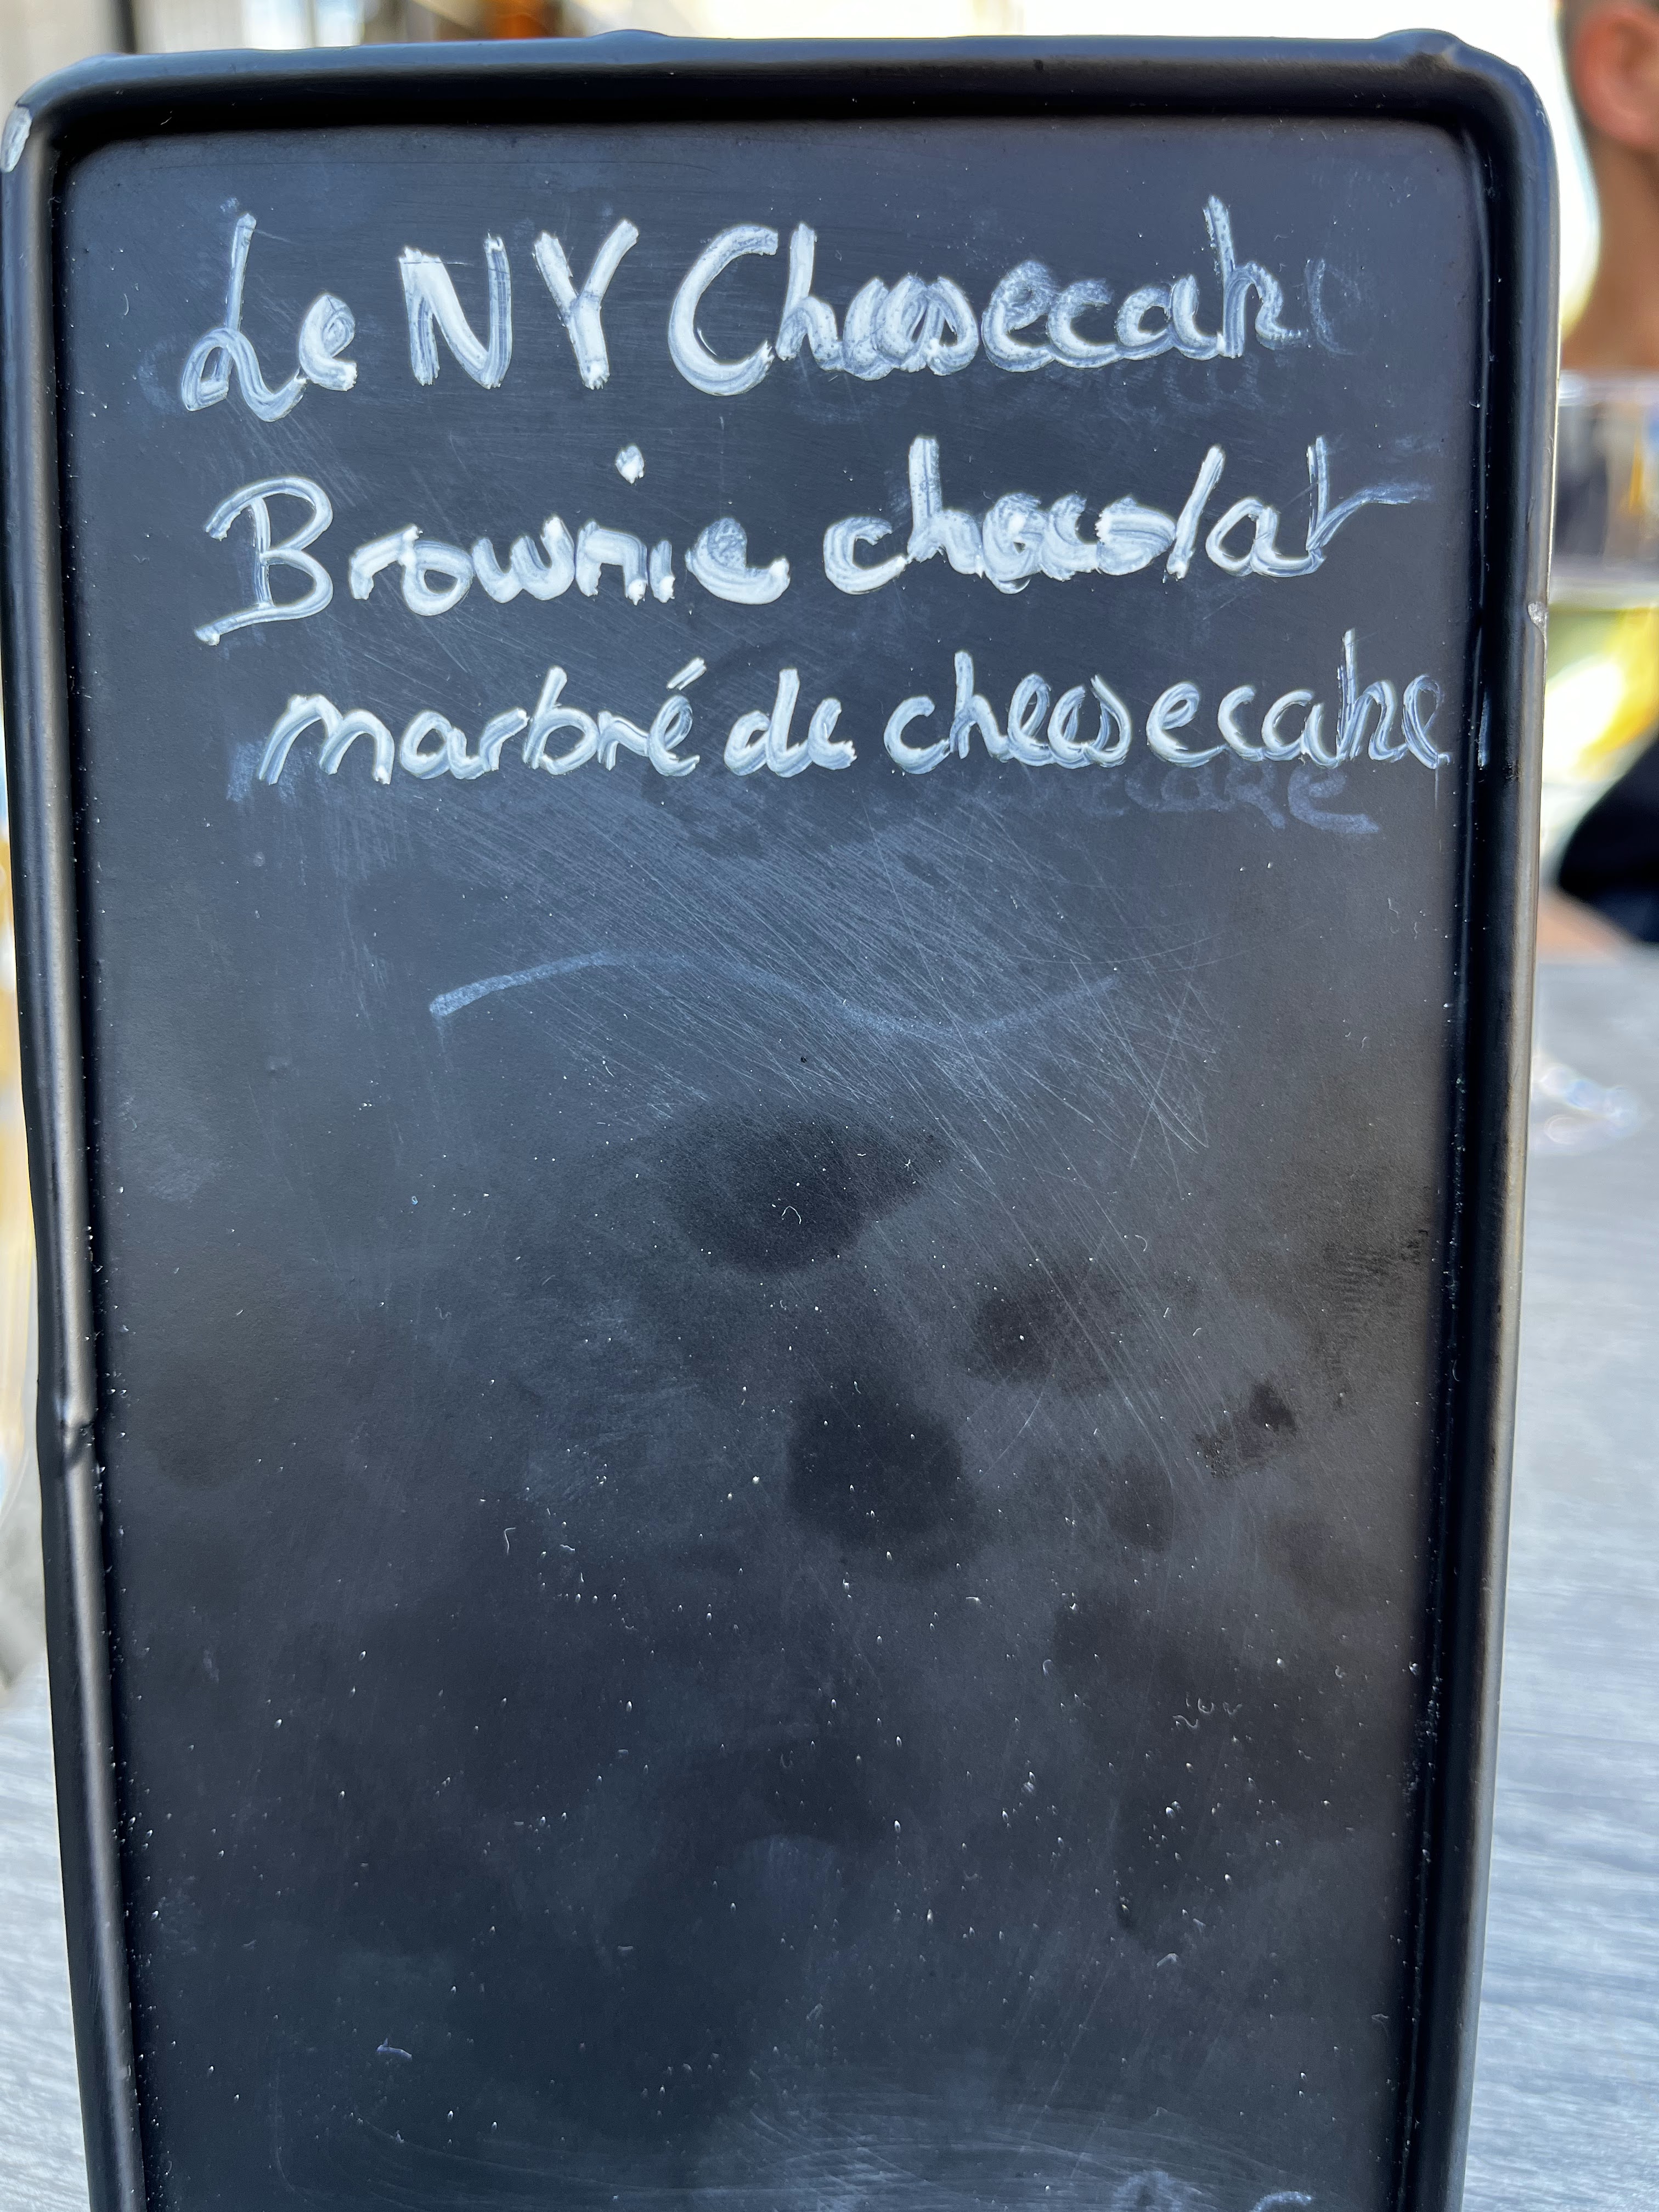 Le NY Cheesecake
Brownie chocolat
marbré de cheesecake